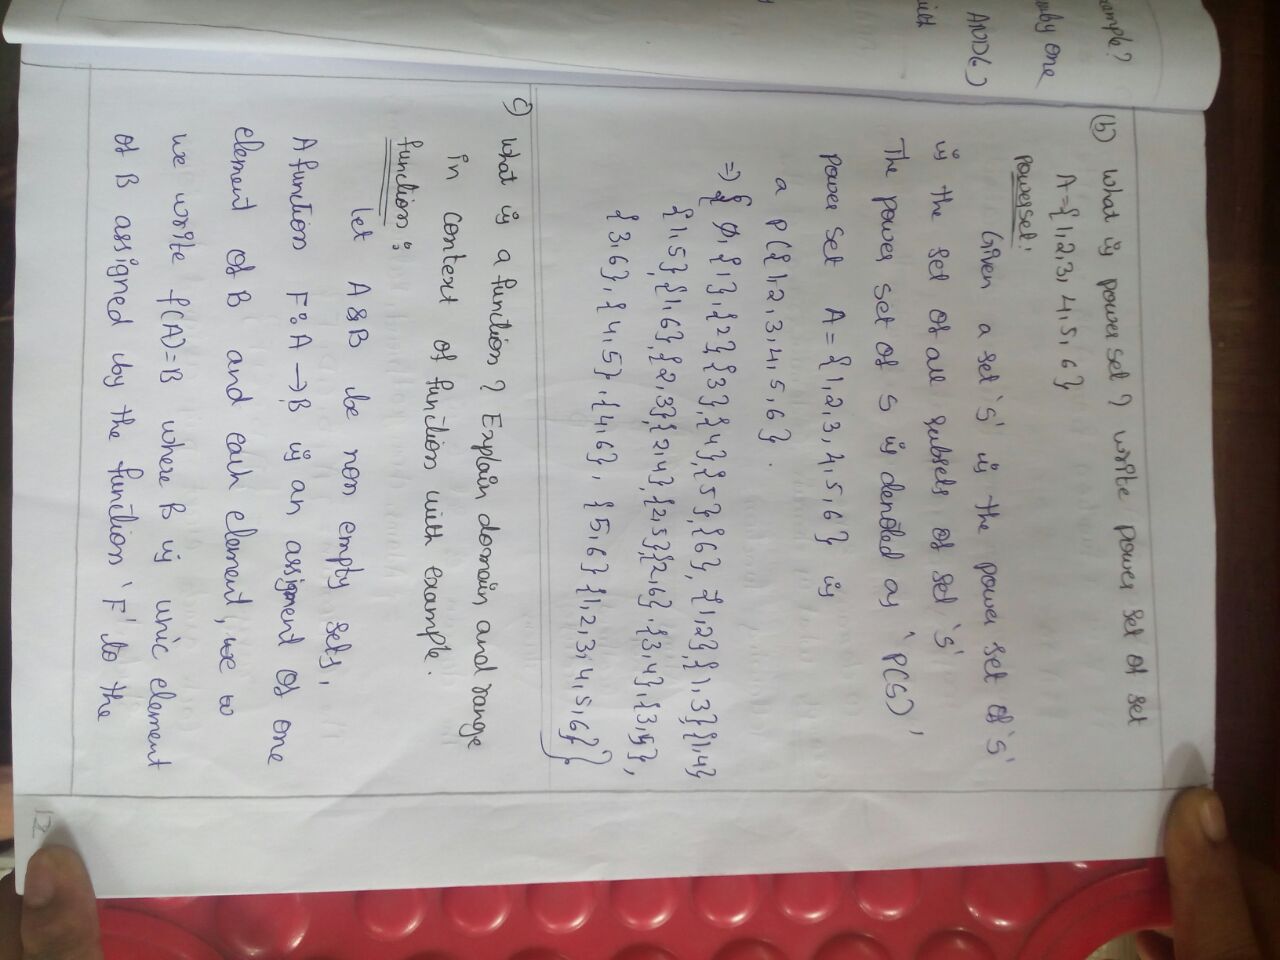 ample?
by one
AND(
(b) What is power set? write power set of set
A={1,2,3,4,5,6}
Powerset:
Given a set 'S' is the power set of 'S'
is the set of all subsets of set 'S'
The power set of S is denoted as 'P(S)',
Power set A={1,2,3,4,5,6} is
a P({1,2,3,4,5,6}.
=> { ∅,{1},{2}{3},{4},{5},{6},{1,2},{1,3}{1,4}
{1,5},{1,6},{2,3}{2,4},{2,5},{2,6},{3,4},{3,5},
{3,6},{4,5},{4,6}, {5,6}{1,2,3,4,5,6}}
c) what is a function? Explain domain and range
in context of function with example.
function:
let A&B be non empty sets,
A function F:A→B is an assignment of one
element of B and each element, we
we write f(A)=B where B is unic element
of B assigned by the function 'F' to the
12